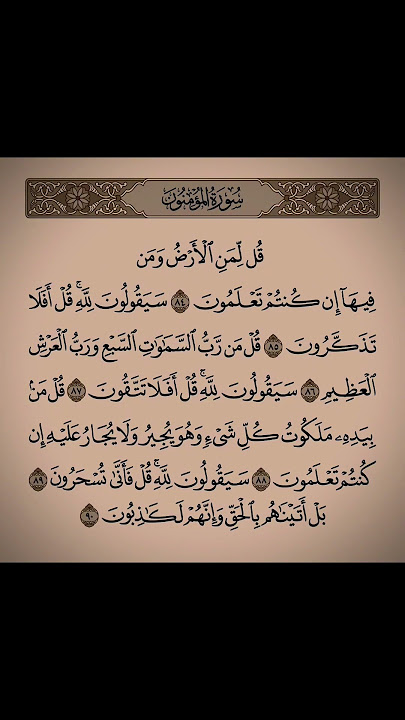 سُورَةُ المُؤْمِنُونَ
قُل لِّمَنِ ٱلْأَرْضُ وَمَن
فِيهَآ إِن كُنتُمْ تَعْلَمُونَ ٨٤ سَيَقُولُونَ لِلَّهِۚ قُلْ أَفَلَا
تَذَكَّرُونَ ٨٥ قُلْ مَن رَّبُّ ٱلسَّمَٰوَٰتِ ٱلسَّبْعِ وَرَبُّ ٱلْعَرْشِ
ٱلْعَظِيمِ ٨٦ سَيَقُولُونَ لِلَّهِۚ قُلْ أَفَلَا تَتَّقُونَ ٨٧ قُلْ مَنۢ
بِيَدِهِۦ مَلَكُوتُ كُلِّ شَىْءٍ وَهُوَ يُجِيرُ وَلَا يُجَارُ عَلَيْهِ إِن
كُنتُمْ تَعْلَمُونَ ٨٨ سَيَقُولُونَ لِلَّهِۚ قُلْ فَأَنَّىٰ تُسْحَرُونَ ٨٩
بَلْ أَتَيْنَٰهُم بِٱلْحَقِّ وَإِنَّهُمْ لَكَٰذِبُونَ ٩٠